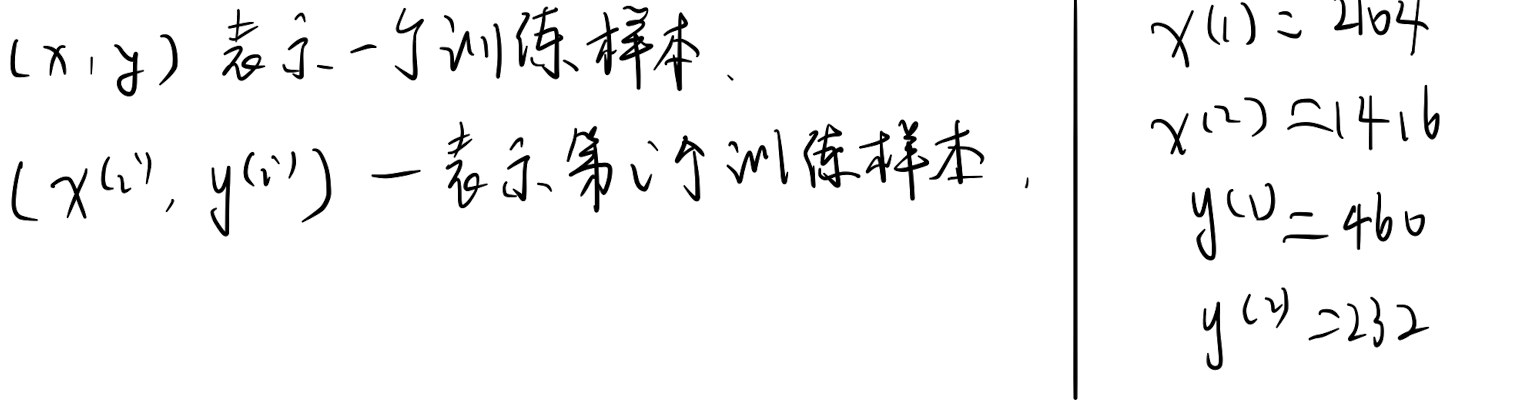 (x, y) 表示一个训练样本.
(x⁽ⁱ⁾, y⁽ⁱ⁾) — 表示第i个训练样本.
x⁽¹⁾ = 2104
x⁽²⁾ = 1416
y⁽¹⁾ = 460
y⁽²⁾ = 232